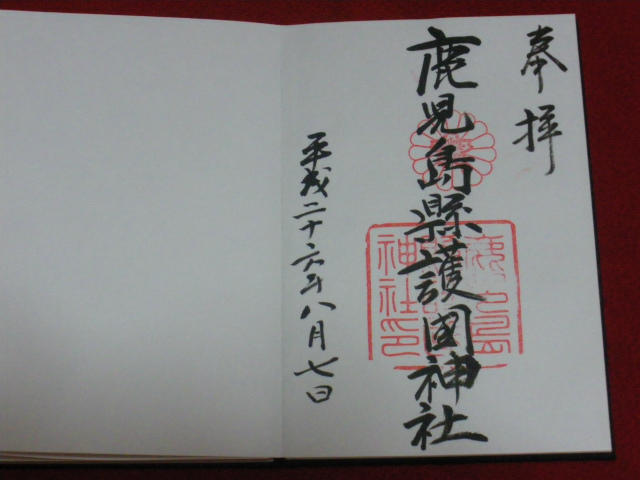 奉拝
鹿児島縣護國神社
平成二十六年八月七日